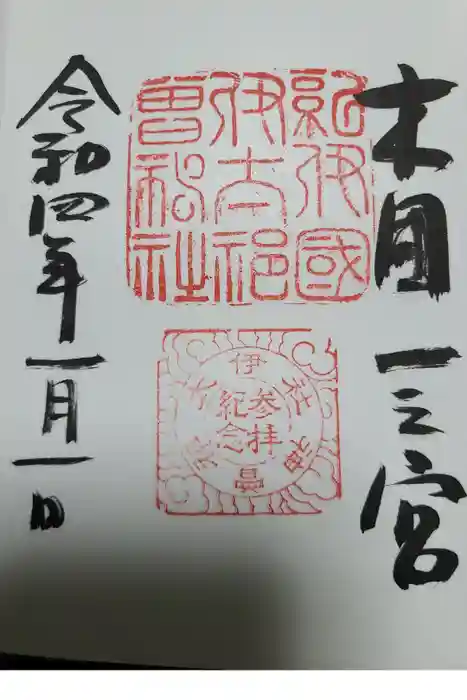 木国一之宮
紀伊國
伊太祁
曽神社
伊太祁曽神社
参拝
紀念
令和四年一月一日